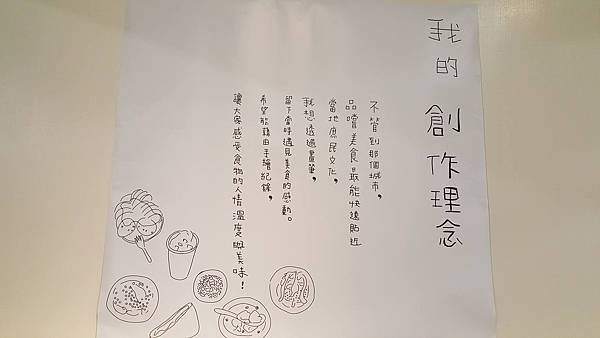 我的創作理念
不管到那個城市，
品嚐美食最能快速貼近
當地庶民文化，
我想透過畫筆，
留下當時遇見美食的感動。
希望能藉由手繪紀錄，
讓大家感受食物的人情溫度與美味！